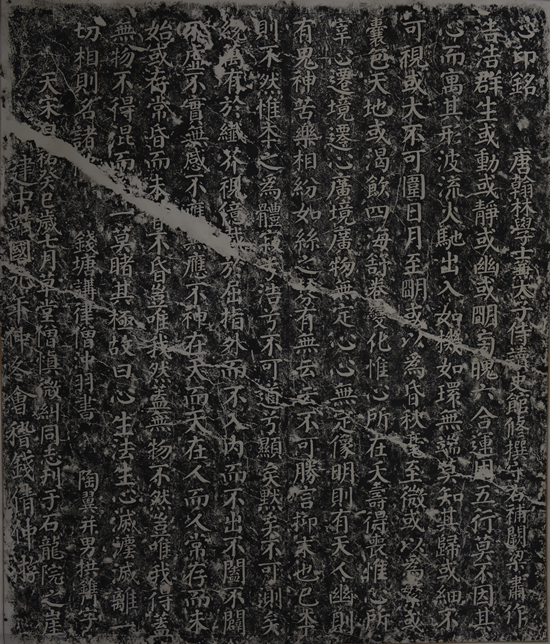 心印銘 唐翰林學士皇太子侍讀史館修撰守右補闕梁肅作
浩浩群生或動或靜或幽或明旁魄六合運用五行莫不因其
心而寓其形波流火馳出入如機如環無端莫知其歸或細不
可視或大不可圍日月至明或以為昏秋毫至微或以為
囊包天地或渴飲四海舒卷變化惟心所在夭壽得喪惟心所
宰心遷境遷心廣境廣物無定心心無定像明則有天人幽則
有鬼神苦樂相紛如絲之棼有無云云不可勝言抑末也已本
則不然惟本之為體寂兮浩兮不可道兮顯矣默矣不可測矣
統萬有於纖芥視億載於屈指外而不入內而不出不闔不闢
不虛不實無感不應無應不神在天而天在人而人常存而未
始或存常昏而未不昏豈唯我然蓋萬物不然豈唯我得蓋
無物不得混而一莫睹其極故曰心生法生心滅塵滅離一
切相則名諸 錢塘講律僧沖羽書 陶翼并男拱刊字
天宋皇祐癸巳歲七月草堂僧慎微糾同志刊于石龍院之崖
建中靖國元年仲冬會稽錢清仲游